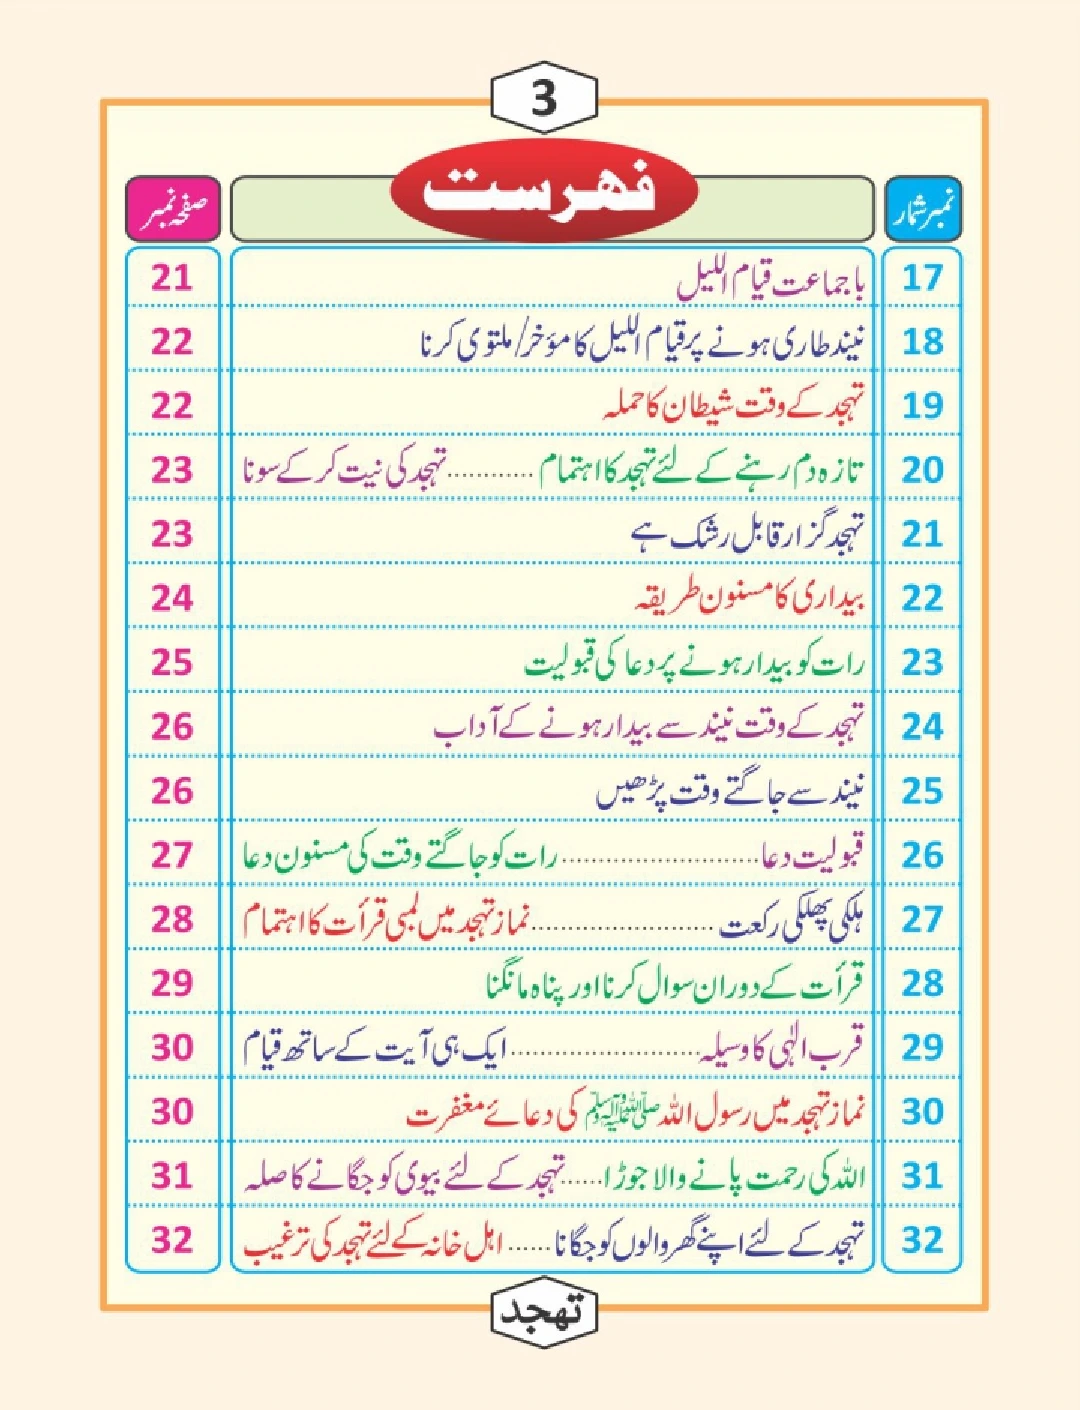 3
نمبر شمار فہرست صفحہ نمبر
17 باجماعت قیام اللیل 21
18 نیند طاری ہونے پر قیام اللیل کا مؤخر/ملتوی کرنا 22
19 تہجد کے وقت شیطان کا حملہ 22
20 تازہ دم رہنے کے لئے تہجد کا اہتمام ........... تہجد کی نیت کر کے سونا 23
21 تہجد گزار قابل رشک ہے 23
22 بیداری کا مسنون طریقہ 24
23 رات کو بیدار ہونے پر دعا کی قبولیت 25
24 تہجد کے وقت نیند سے بیدار ہونے کے آداب 26
25 نیند سے جاگتے وقت پڑھیں 26
26 قبولیت دعا ......................... رات کو جاگتے وقت کی مسنون دعا 27
27 ہلکی پھلکی رکعت ....................... نماز تہجد میں لمبی قرأت کا اہتمام 28
28 قرأت کے دوران سوال کرنا اور پناہ مانگنا 29
29 قرب الٰہی کا وسیلہ ........................ ایک ہی آیت کے ساتھ قیام 30
30 نماز تہجد میں رسول اللہ ﷺ کی دعائے مغفرت 30
31 اللہ کی رحمت پانے والا جوڑا ...... تہجد کے لئے بیوی کو جگانے کا صلہ 31
32 تہجد کے لئے اپنے گھر والوں کو جگانا ...... اہل خانہ کے لئے تہجد کی ترغیب 32
تہجد